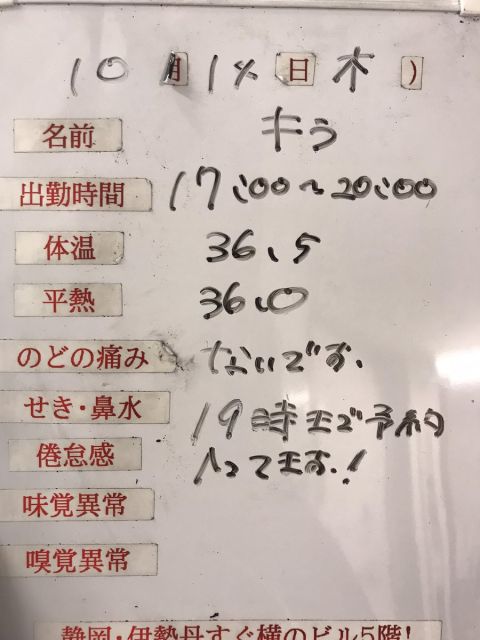 10月14日 木)
名前 キラ
出勤時間 17:00〜20:00
体温 36.5
平熱 36.0
のどの痛み ないです.
せき・鼻水 19時まで予約
倦怠感 入ってます.!
味覚異常
嗅覚異常
静岡・伊勢丹すぐ横のビル5階!